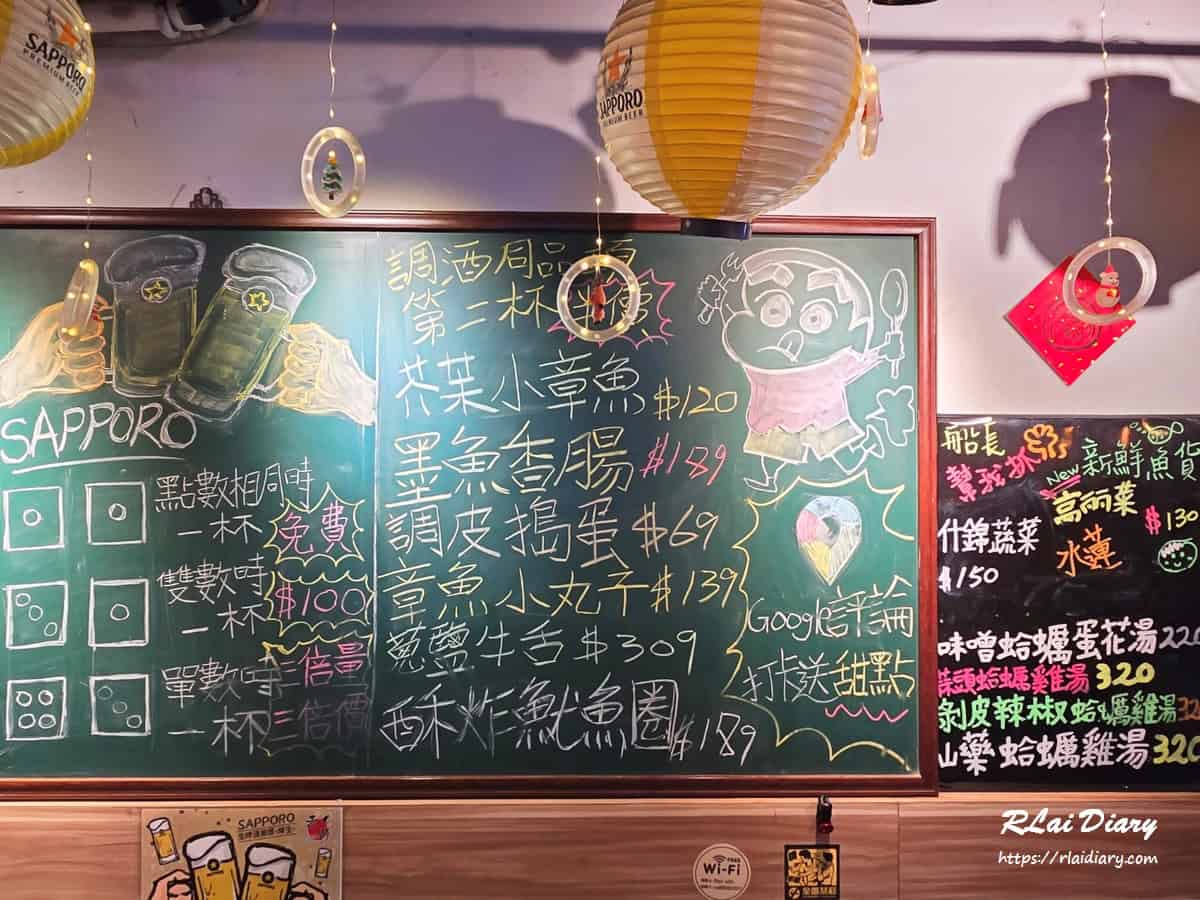 SAPPORO
PREMIUM BEER
SAPPORO
PREMIUM BEER
SAPPORO
點數相同時
一杯 免費
雙數時
一杯 $100
單數時 三倍量
一杯 三倍價
調酒同品項
第二杯半價
芥茉小章魚 $120
墨魚香腸 $189
調皮搗蛋 $69
章魚小丸子 $139
蔥鹽牛舌 $309
酥炸魷魚圈 $189
Google評論
打卡送甜點
船長
幫我抓
New
新鮮魚貨
高麗菜
$130
什錦蔬菜
$150
水蓮
味噌蛤蠣蛋花湯 220
蒜頭蛤蠣雞湯 320
剝皮辣椒蛤蠣雞湯 32
山藥蛤蠣雞湯 320
SAPPORO
FREE
Wi-Fi
RLai Diary
https://rlaidiary.com